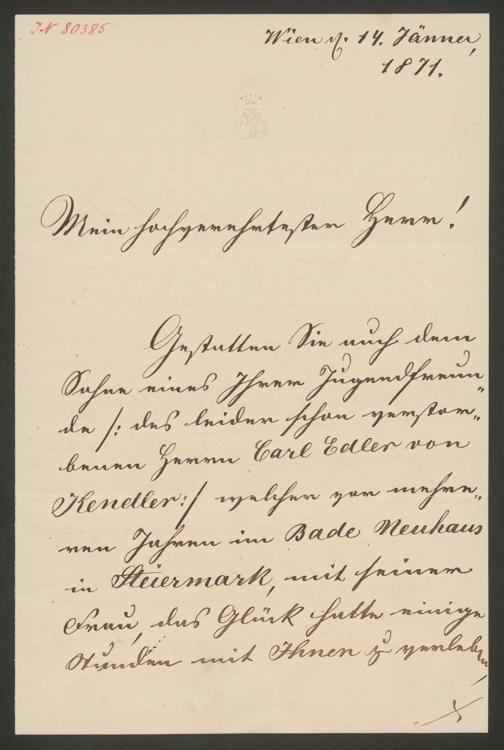 IN 80385
Wien d. 14. Jänner,
1871.
Mein hochverehrtester Herr!
Gestatten Sie auch dem
Sohne eines Ihrer Jugendfreun„
de /: des leider schon verstor„
benen Herrn Carl Edler von
Kendler:/ welcher vor mehre„
ren Jahren im Bade Neuhaus
in Steiermark, mit seiner
Frau, das Glück hatte einige
Stunden mit Ihnen zu verleben,